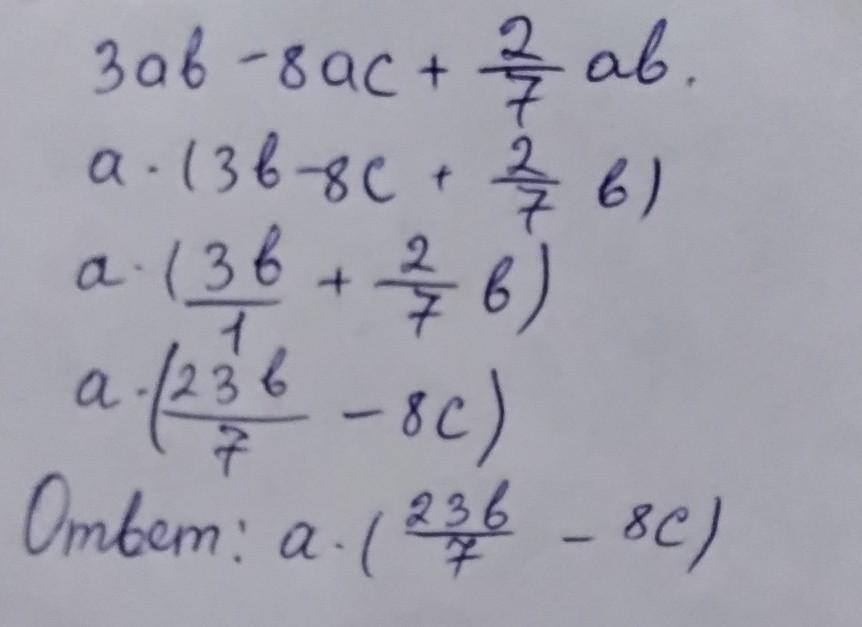 3ab - 8ac + 2/7 ab.
a · (3b - 8c + 2/7 b)
a · (3b/1 + 2/7 b)
a · (23b/7 - 8c)
Ответ: a · (23b/7 - 8c)